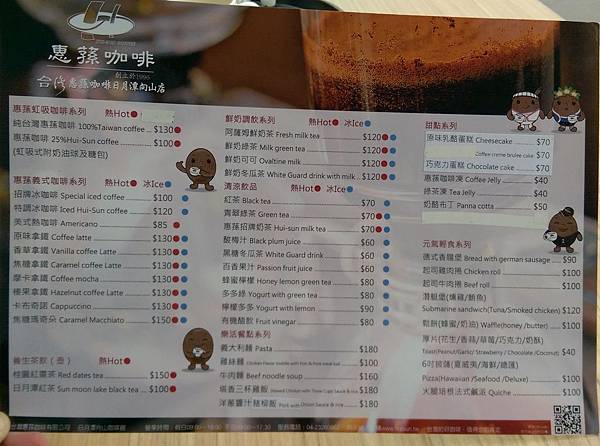 惠蓀咖啡
創立於1995
台灣惠蓀咖啡日月潭向山店
惠蓀虹吸咖啡系列 熱Hot
純台灣惠蓀咖啡 100%Taiwan coffee $130
惠蓀咖啡 25%Hui-Sun coffee $100
(虹吸式附奶油球及糖包)
惠蓀義式咖啡系列 熱Hot 冰Ice
招牌冰咖啡 Special iced coffee $100
特調冰咖啡 Iced Hui-Sun coffee $120
美式熱咖啡 Americano $85
原味拿鐵 Coffee latte $130
香草拿鐵 Vanilla coffee Latte $130
焦糖拿鐵 Caramel coffee Latte $130
摩卡拿鐵 Coffee mocha $130
榛果拿鐵 Hazelnut coffee Latte $130
卡布奇諾 Cappuccino $130
焦糖瑪奇朵 Caramel Macchiato $150
養生茶飲（壺） 熱Hot
桂圓紅棗茶 Red dates tea $150
日月潭紅茶 Sun moon lake black tea $100
鮮奶調飲系列 熱Hot 冰Ice
阿薩姆鮮奶茶 Fresh milk tea $120
鮮奶綠茶 Milk green tea $120
鮮奶可可 Ovaltine milk $120
鮮奶冬瓜茶 White Guard drink with milk $120
清涼飲品 熱Hot 冰Ice
紅茶 Black tea $70
青翠綠茶 Green tea $70
惠蓀招牌奶茶 Hui-sun milk tea $70
酸梅汁 Black plum juice $60
黑糖冬瓜茶 White Guard drink $60
百香果汁 Passion fruit juice $60
蜂蜜檸檬 Honey lemon green tea $80
多多綠 Yogurt with green tea $80
檸檬多多 Yogurt with lemon $90
有機醋飲 Fruit vinegar $80
樂活餐點系列
義大利麵 Pasta $180
雞絲麵 $100
牛肉麵 Beef noodle soup $160
塔香三杯雞飯 $180
洋蔥醬汁豬柳飯 $180
甜點系列
原味乳酪蛋糕 Cheesecake $70
Coffee creme brulee cake $70
巧克力蛋糕 Chocolate cake $70
惠蓀咖啡凍 Coffee Jelly $40
綠茶凍 Tea Jelly $40
奶酪布丁 Panna cotta $50
元氣輕食系列
德式香腸堡 Bread with german sausage $90
起司雞肉捲 Chicken roll $100
起司牛肉捲 Beef roll $100
潛艇堡(燻雞/鮪魚)
Submarine sandwich(Tuna/Smoked chicken) $120
鬆餅(蜂蜜/奶油) Waffle(honey /butter) $100
厚片(花生/香蒜/草莓/巧克力/奶酥)
Toast(Peanut/Garlic/ Strawberry / Chocolate /Coconut) $40
6吋披薩(夏威夷/海鮮/總匯)
Pizza(Hawaiian /Seafood /Deluxe) $100
火腿培根法式鹹派 Quiche $100